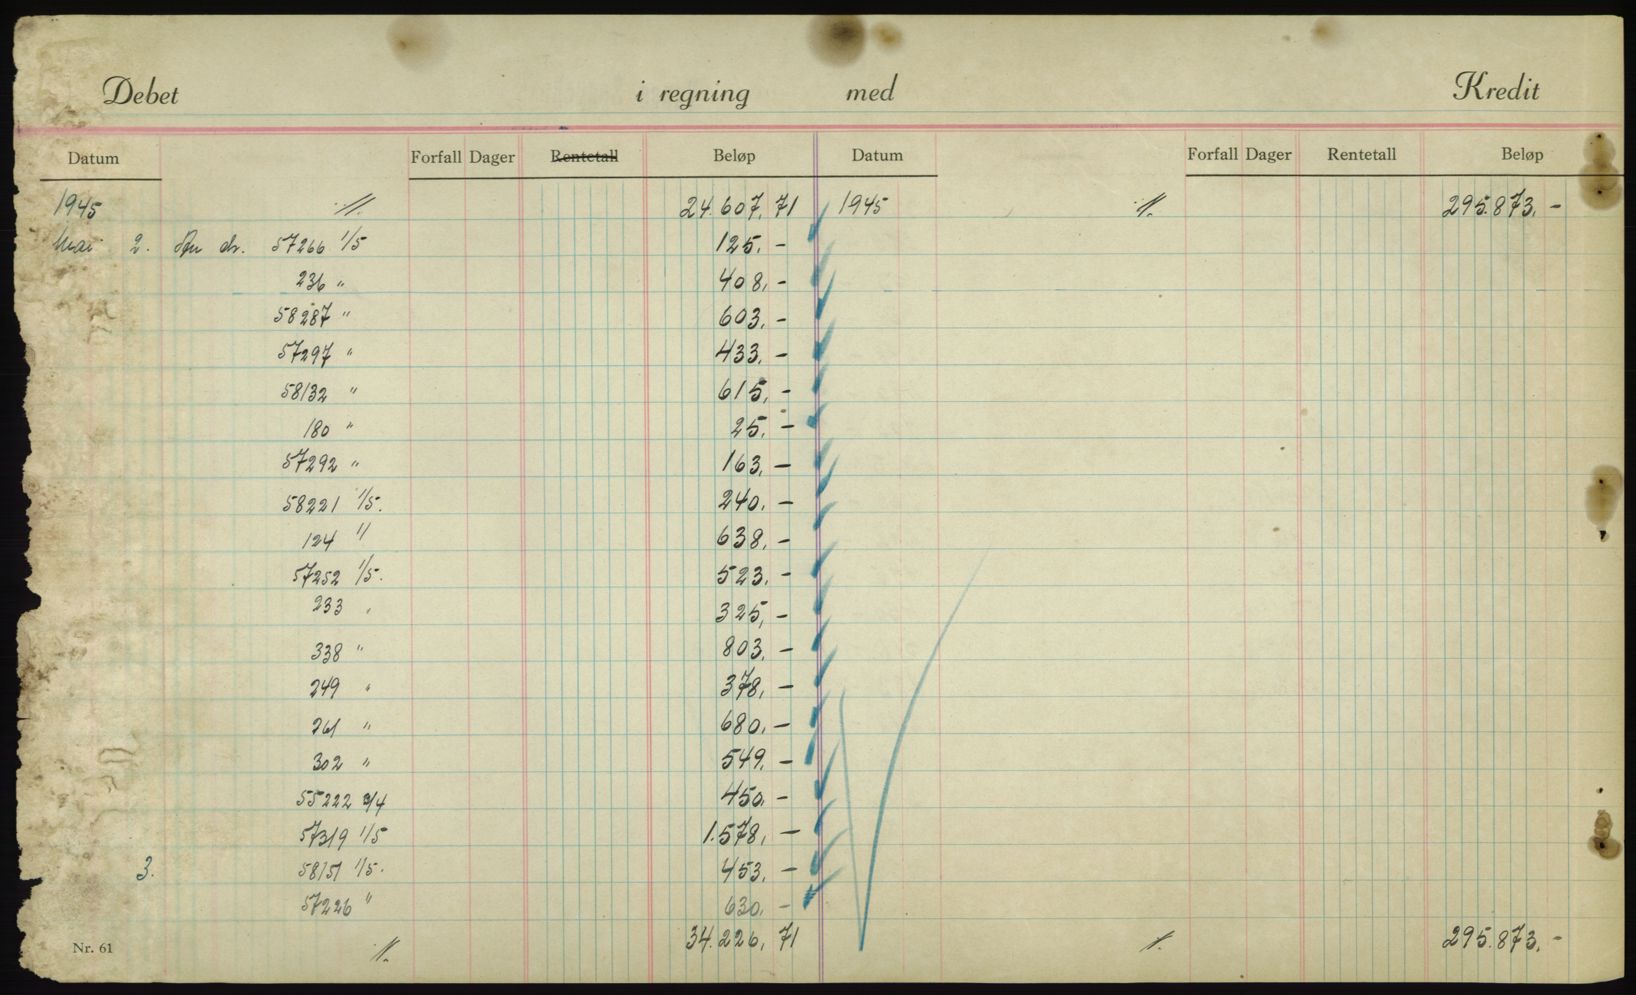 Debet i regning med Kredit
Datum Forfall Dager Rentetall Beløp Datum Forfall Dager Rentetall Beløp
1945 ·//. 24.607,71 1945 ·//. 295.873,-
Mai 2. An dr. 57266 1/5 125,-
236 " 408,-
58287 " 603,-
57297 " 433,-
58132 " 615,-
180 " 25,-
57292 " 163,-
58221 1/5. 240,-
124 " 638,-
57252 1/5. 523,-
233 " 325,-
338 " 803,-
249 " 378,-
261 " 680,-
302 " 549,-
55222 /4 450,-
57319 1/5 1.578,-
3. 58151 1/5. 453,-
57226 " 630,-
Nr. 61 ·//. 34.226,71 ·//. 295.873,-